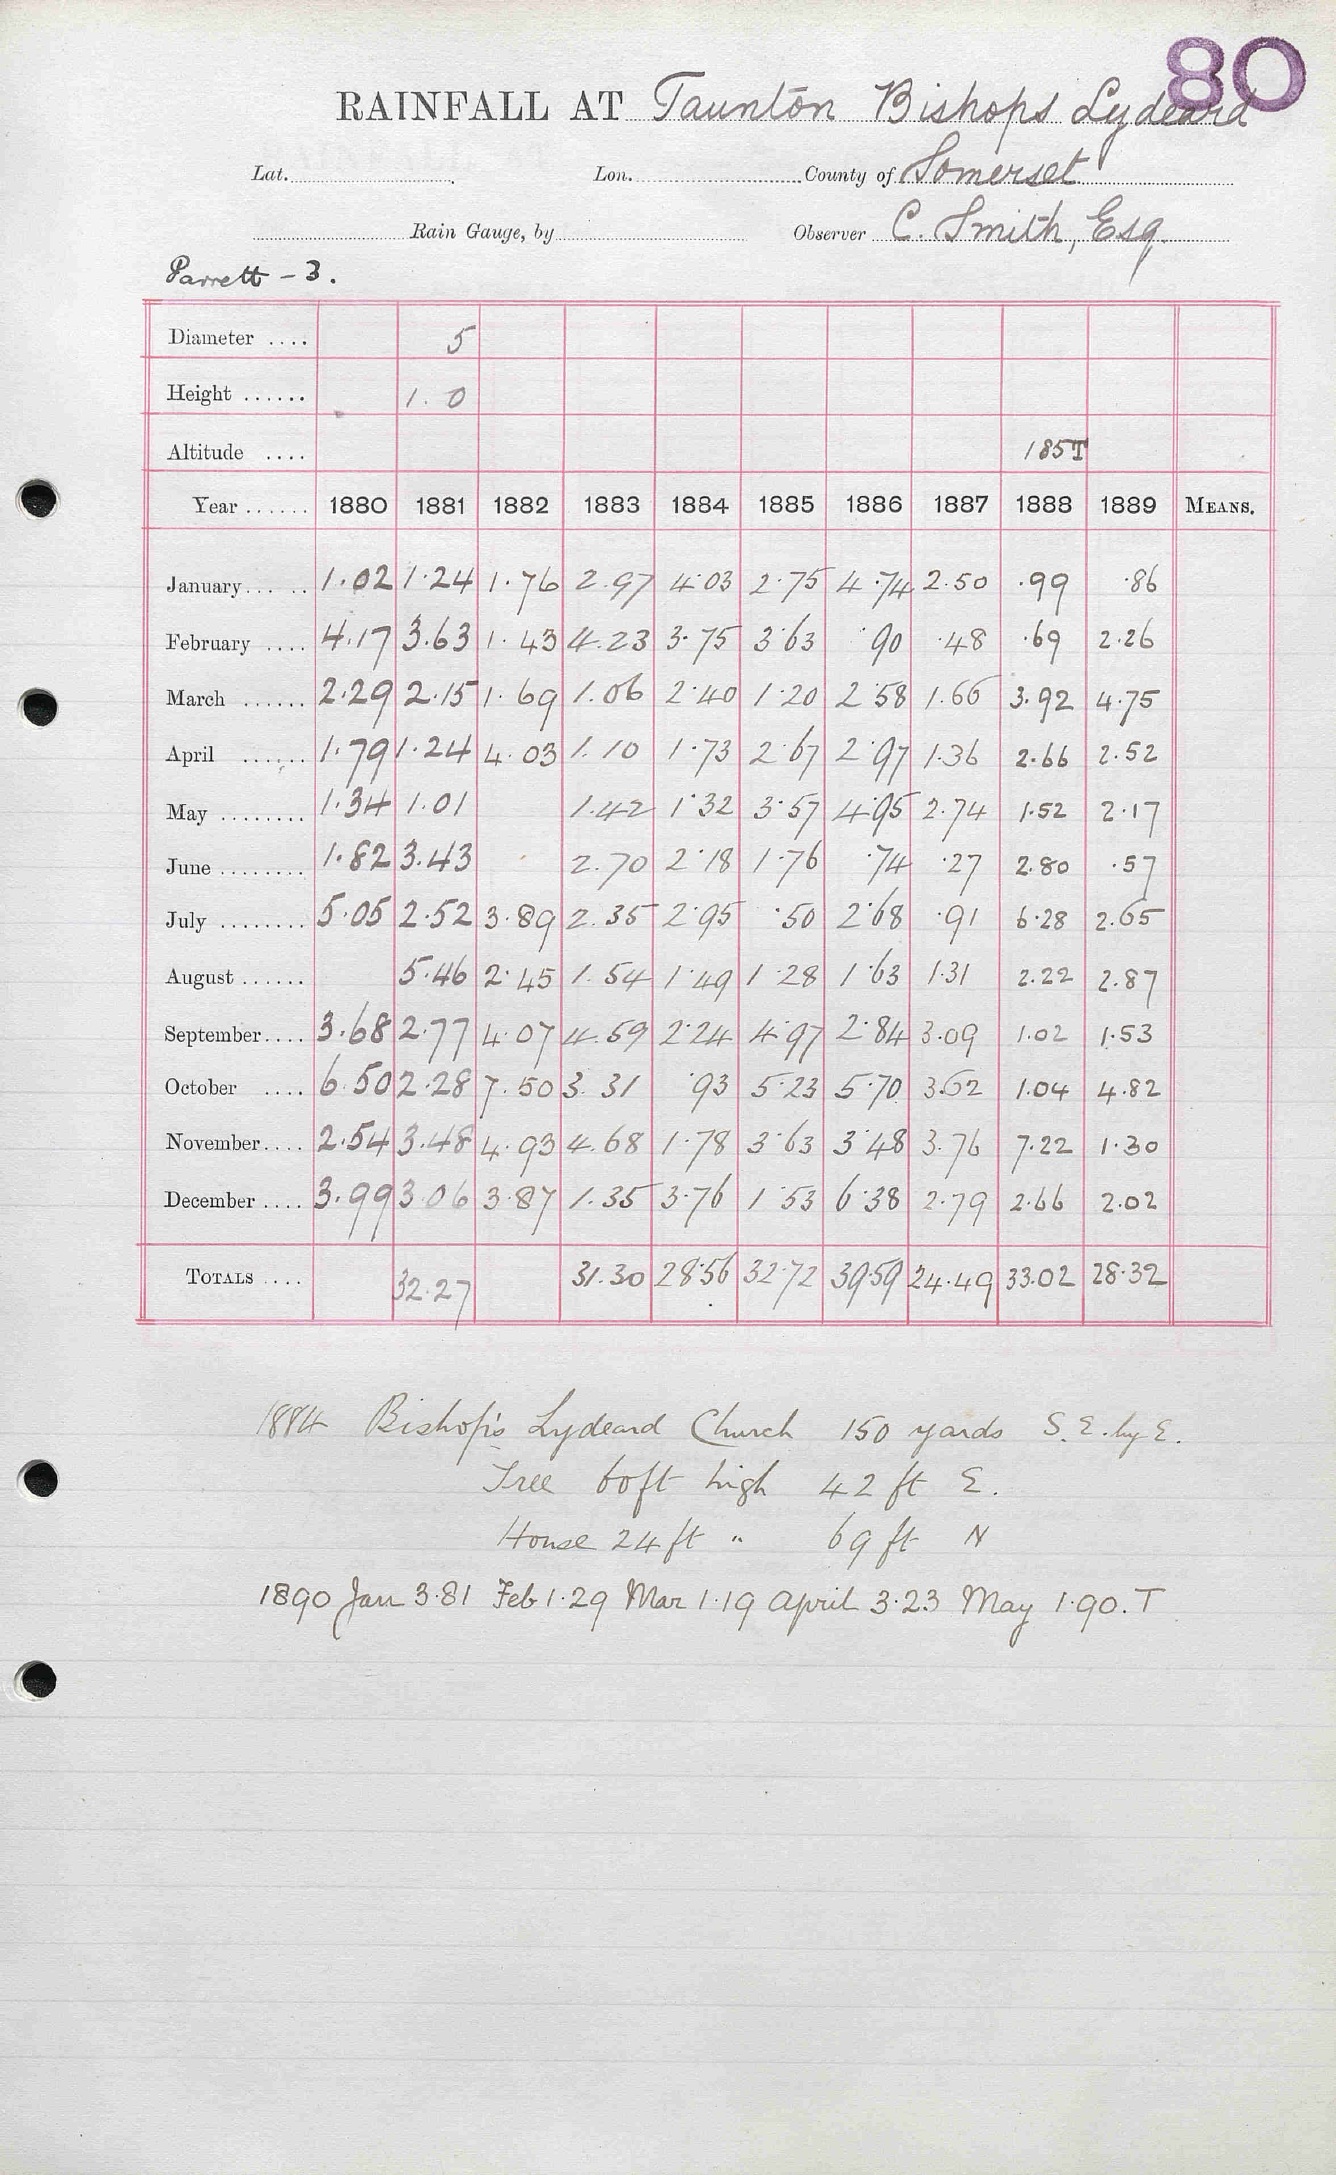 80
RAINFALL AT Taunton Bishops Lydeard
Lat. Lon. County of Somerset
Rain Gauge, by Observer C. Smith, Esq.
Parrett - 3.
Diameter .... 5
Height ...... 1.0
Altitude .... 185T
Year ...... 1880 1881 1882 1883 1884 1885 1886 1887 1888 1889 MEANS.
January ... .. 1.02 1.24 1.76 2.97 4.03 2.75 4.74 2.50 .99 .86
February .... 4.17 3.63 1.43 4.23 3.75 3.63 .90 .48 .69 2.26
March ...... 2.29 2.15 1.69 1.06 2.40 1.20 2.58 1.66 3.92 4.75
April ...... 1.79 1.24 4.03 1.10 1.73 2.67 2.97 1.36 2.66 2.52
May ........ 1.34 1.01 1.42 1.32 3.57 4.95 2.74 1.52 2.17
June ........ 1.82 3.43 2.70 2.18 1.76 .74 .27 2.80 .57
July ........ 5.05 2.52 3.89 2.35 2.95 .50 2.68 .91 6.28 2.65
August ...... 5.46 2.45 1.54 1.49 1.28 1.63 1.31 2.22 2.87
September .... 3.68 2.77 4.07 4.59 2.24 4.97 2.84 3.09 1.02 1.53
October .... 6.50 2.28 7.50 3.31 .93 5.23 5.70 3.62 1.04 4.82
November .... 2.54 3.48 4.93 4.68 1.78 3.63 3.48 3.76 7.22 1.30
December .... 3.99 3.06 3.87 1.35 3.76 1.53 6.38 2.79 2.66 2.02
TOTALS .... 32.27 31.30 28.56 32.72 39.59 24.49 33.02 28.32
1884 Bishop's Lydeard Church 150 yards S.E. by E.
Tree 60ft high 42 ft E.
House 24 ft " 69 ft N
1890 Jan 3.81 Feb 1.29 Mar 1.19 April 3.23 May 1.90. T